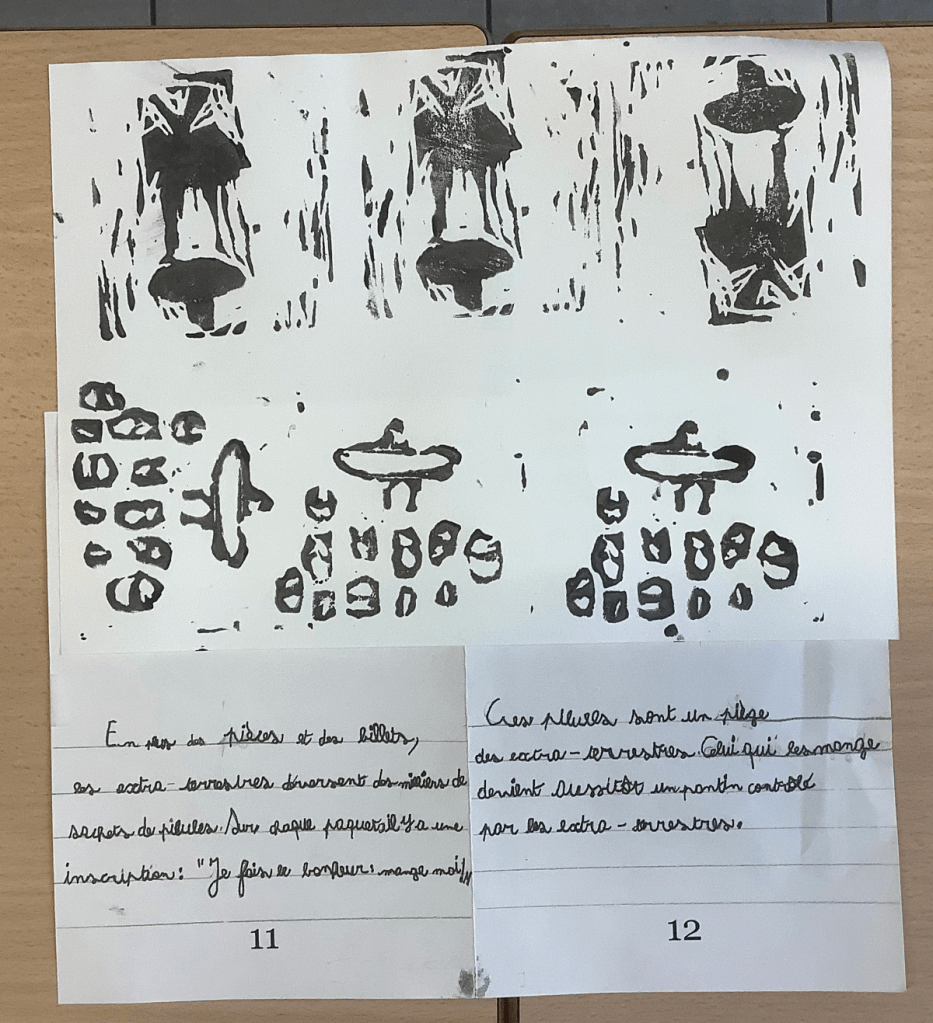 En plus des pièces et des billets,
les extra-terrestres déversent des milliers de
sachets de pilules. Sur chaque paquet il y a une
inscription: "Je fais le bonheur: mange moi!"
11
Ces pilules sont un piège
des extra-terrestres. Celui qui les mange
devient aussitôt un pantin contrôlé
par les extra-terrestres.
12